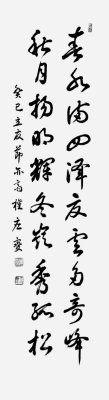 春水满四泽夏云多奇峰
秋月扬明辉冬岭秀孤松
癸巳立夏节